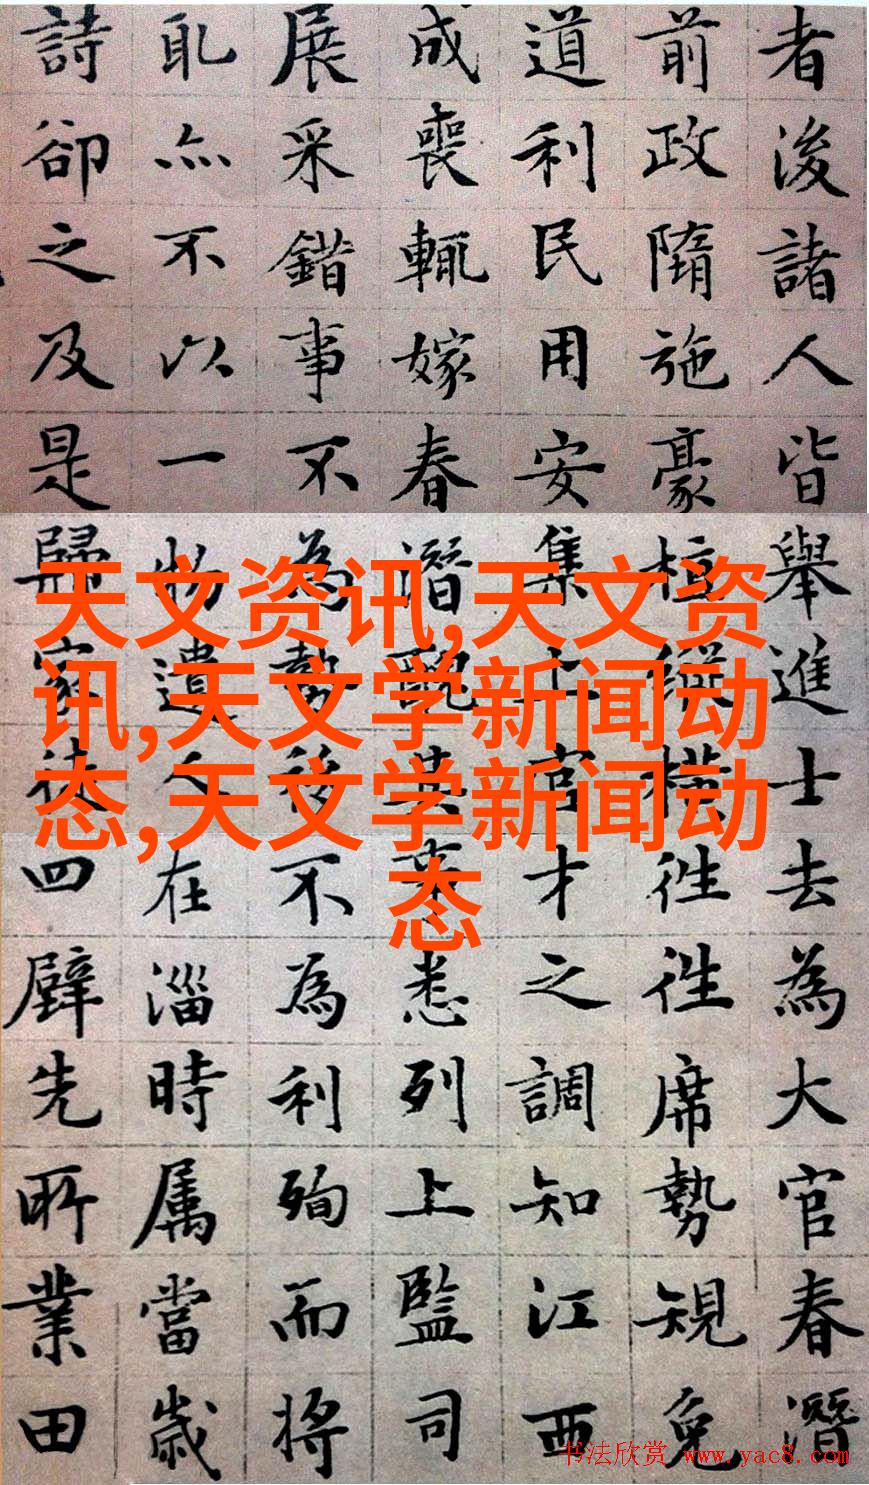 者浚諸人皆舉進士去為大官春潛
前政隋施豪植縱橫往往席勢規免
道利民用安集上官才之調知江西
成喪輒嫁春潛醜其業悉列上監司
展采錯事不為勢移不為利殉而將
耴亦不以一物遺人在淄時属當歲
詩卻之及是歸家徒四壁先所業田
天文资讯,天文资
讯,天文学新闻动
态,天文学新闻动
态
书法欣赏 www.yac8.com